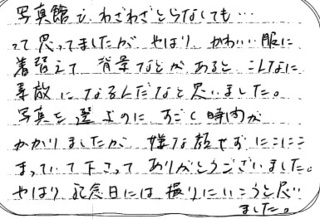 写真館で、わざわざとらなくても…
って思ってましたが やはり かわいい服に
着替えて 背景などが あると こんなに
素敵に なるんだなと 思いました。
写真を 選ぶのに すごく時間が
かかりましたが 嫌な顔せず にこにこ
まっていて下さって ありがとうございました。
やはり 記念日には 撮りにいこうと思い
ました。